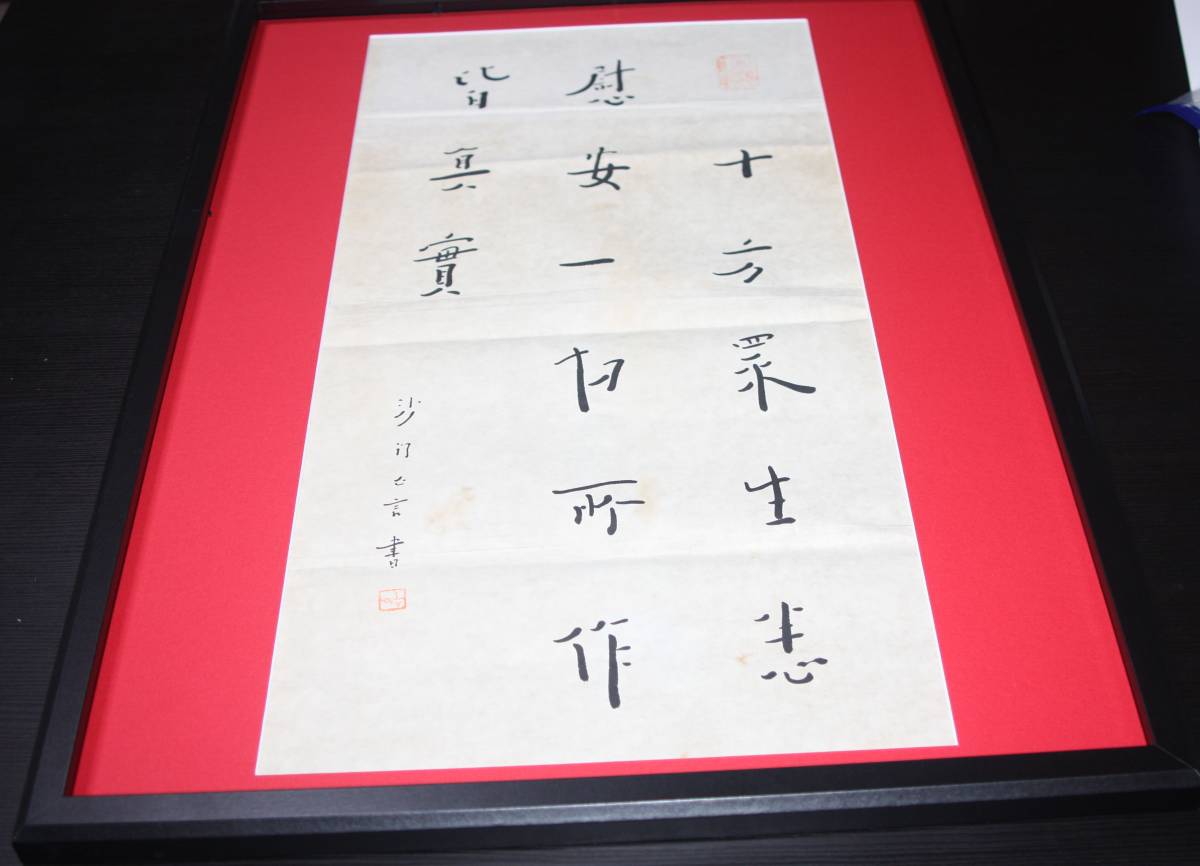 十方眾生悉
慰安一切所作
皆真實
沙門亡言書